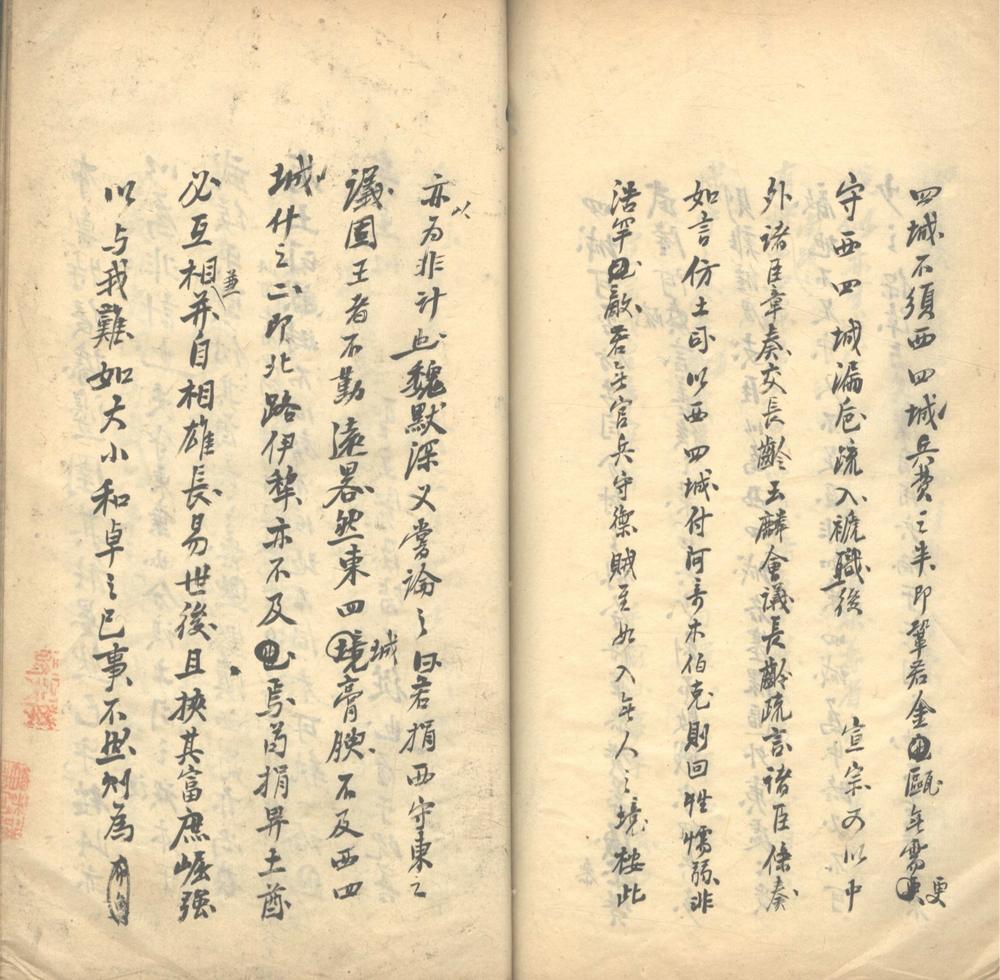 四城不須西四城兵費之半即鞏若金甌無需更
守西四城漏卮疏入褫職後 宣宗可以中
外諸臣章奏交長齡玉麟會議長齡疏言諸臣條奏
如言仿土司以西四城付阿奇木伯克則回性懦弱非
浩罕敵若無官兵守禦賊至如入無人之境按此
亦以為非計也魏默深又嘗論之曰若捐西守東之
議固王者不勤遠略然東四城膏腴不及西四
城什之二即北路伊犂亦不及焉苟捐畀土酋
必互相兼并自相雄長易世後且挾其富庶崛強
以与我難如大小和卓之已事不然則為